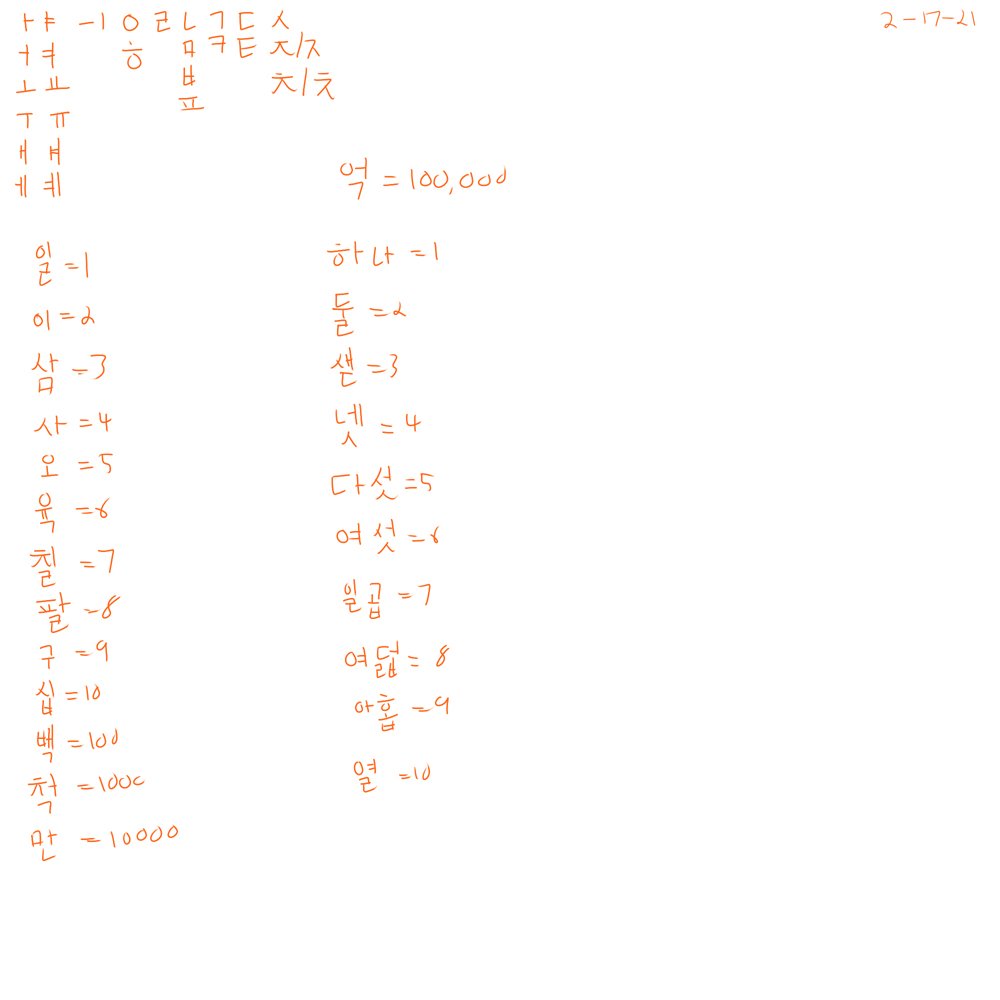 ㅏ ㅑ ㅡ ㅣ ㅇ ㄹ ㄴ ㄱ ㄷ ㅅ 2-17-21
ㅓ ㅕ ㅎ ㅁ ㅋ ㅌ ㅈ/ㅈ
ㅗ ㅛ ㅂ ㅊ/ㅊ
ㅍ
ㅜ ㅠ
ㅐ ㅒ
ㅔ ㅖ
억 = 100,000
일 = 1 하나 = 1
이 = 2 둘 = 2
삼 = 3 샏 = 3
사 = 4 넷 = 4
오 = 5 다섯 = 5
육 = 6 여섯 = 6
칠 = 7 일곱 = 7
팔 = 8 여덟 = 8
구 = 9 아홉 = 9
십 = 10
백 = 100
척 = 1000 열 = 10
만 = 10000